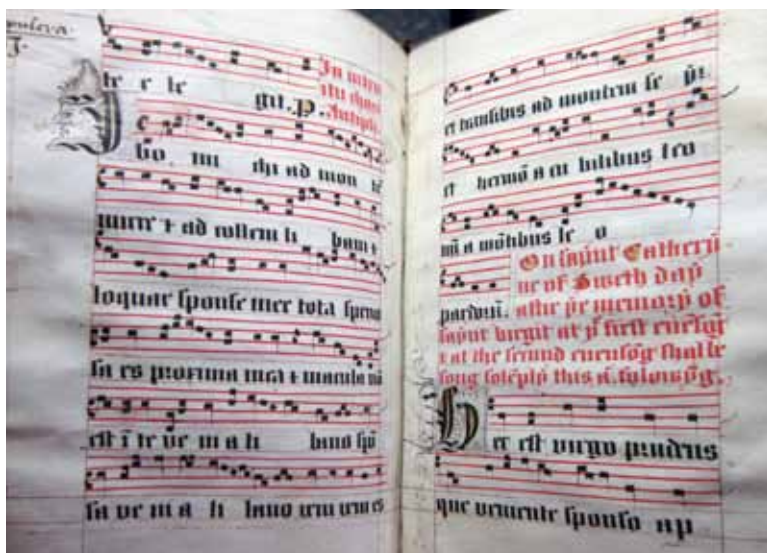 te e le git. p.
In intro
itu chori
Antiph
Ibo. mi chi ad mon tē
mirre + ad collem li bani +
loquar sponse mee tota specio
sa es proxima mea + macula nō
est ī te ve ni a li bano spō
sa ve ni a li bano veni veni es
et transibis ad montem se yr
et hermō a cu bilibus leo
nū a mōtibus le o
pardorū.
On saynt Catheryne
ne of Sweth day
after þe memory of
saynt birgit at þe first euēsōg
+ at the second euensōg shall be
song solēply this a. folowyng.
Hec est virgo prudens
que veniente sponso ap